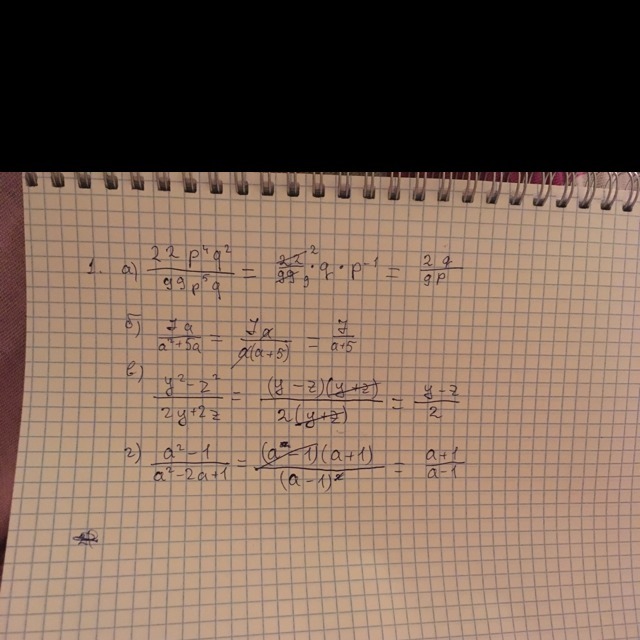 1. а) 22p⁴q² / 99p⁵q = 22² / 99₉ · q · p⁻¹ = 2q / 9p
б) 7a / a²+5a = 7a / a(a+5) = 7 / a+5
в) y²−z² / 2y+2z = (y−z)(y+z) / 2(y+z) = y−z / 2
г) a²−1 / a²−2a+1 = (a−1)(a+1) / (a−1)² = a+1 / a−1